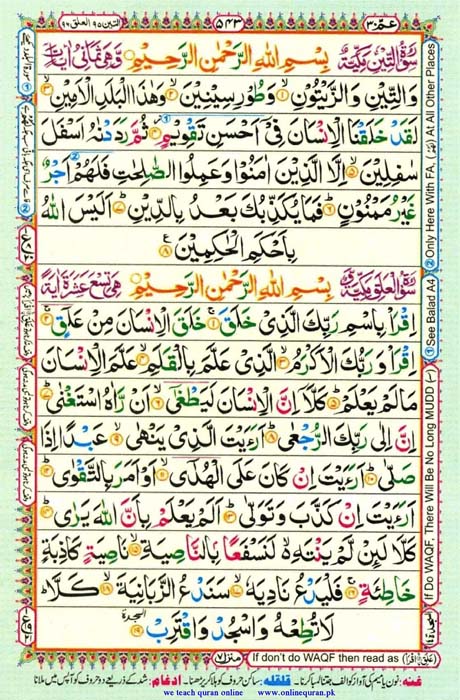 التين ٩٥ العلق ٩٦
٥٤٣
عم ٣٠
سورة التين مكية بسم الله الرحمن الرحيم وهي ثماني آيات
وَالتِّينِ وَالزَّيْتُونِ ۙ﴿١﴾ وَطُورِ سِينِينَ ۙ﴿٢﴾ وَهٰذَا الْبَلَدِ الْأَمِينِ ۙ﴿٣﴾
لَقَدْ خَلَقْنَا الْإِنْسَانَ فِيْٓ اَحْسَنِ تَقْوِيْمٍ ﴿٤﴾ ثُمَّ رَدَدْنٰهُ اَسْفَلَ
سٰفِلِيْنَ ۙ﴿٥﴾ اِلَّا الَّذِيْنَ اٰمَنُوْا وَعَمِلُوا الصّٰلِحٰتِ فَلَهُمْ اَجْرٌ
غَيْرُ مَمْنُوْنٍ ﴿٦﴾ فَمَا يُكَذِّبُكَ بَعْدُ بِالدِّيْنِ ﴿٧﴾ اَلَيْسَ اللّٰهُ
بِاَحْكَمِ الْحٰكِمِيْنَ ﴿٨﴾
سورة العلق مكية بسم الله الرحمن الرحيم هي تسع عشرة آية
اِقْرَاْ بِاسْمِ رَبِّكَ الَّذِيْ خَلَقَ ﴿١﴾ خَلَقَ الْاِنْسَانَ مِنْ عَلَقٍ ﴿٢﴾
اِقْرَاْ وَرَبُّكَ الْاَكْرَمُ ﴿٣﴾ الَّذِيْ عَلَّمَ بِالْقَلَمِ ﴿٤﴾ عَلَّمَ الْاِنْسَانَ
مَا لَمْ يَعْلَمْ ﴿٥﴾ كَلَّآ اِنَّ الْاِنْسَانَ لَيَطْغٰٓى ﴿٦﴾ اَنْ رَّاٰهُ اسْتَغْنٰى ﴿٧﴾
اِنَّ اِلٰى رَبِّكَ الرُّجْعٰى ﴿٨﴾ اَرَءَيْتَ الَّذِيْ يَنْهٰى ﴿٩﴾ عَبْدًا اِذَا
صَلّٰى ﴿١٠﴾ اَرَءَيْتَ اِنْ كَانَ عَلَى الْهُدٰٓى ﴿١١﴾ اَوْ اَمَرَ بِالتَّقْوٰى ﴿١٢﴾
اَرَءَيْتَ اِنْ كَذَّبَ وَتَوَلّٰى ﴿١٣﴾ اَلَمْ يَعْلَمْ بِاَنَّ اللّٰهَ يَرٰى ﴿١٤﴾
كَلَّا لَئِنْ لَّمْ يَنْتَهِ لَنَسْفَعًۢا بِالنَّاصِيَةِ ﴿١٥﴾ نَاصِيَةٍ كَاذِبَةٍ
خَاطِئَةٍ ﴿١٦﴾ فَلْيَدْعُ نَادِيَهٗ ﴿١٧﴾ سَنَدْعُ الزَّبَانِيَةَ ﴿١٨﴾ كَلَّا
لَا تُطِعْهُ وَاسْجُدْ وَاقْتَرِبْ ﴿١٩﴾ السجدة
① See Balad A4 ② Only Here With FA, (فَلَهُمْ) At All Other Places
If Do WAQF, There Will Be No Long MUDD (~)
منزل ٧
If don't do WAQF then read as
غنه: نون یا میم کی آواز کو الف جتنا لمبا کرنا۔ قلقله: ساکن حروف کو ہلا کر پڑھنا۔ ادغام: شد کے ذریعے دو حروف کو آپس میں ملانا
we teach quran online www.onlinequran.pk